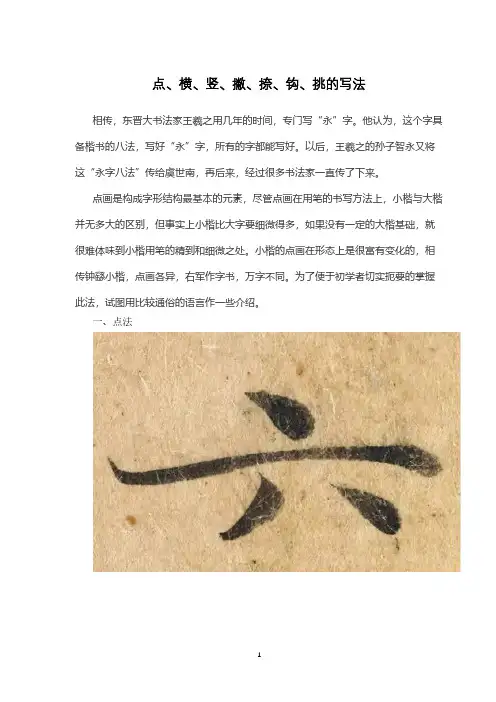 点、横、竖、撇、捺、钩、挑的写法
相传，东晋大书法家王羲之用几年的时间，专门写“永”字。他认为，这个字具
备楷书的八法，写好“永”字，所有的字都能写好。以后，王羲之的孙子智永又将
这“永字八法”传给虞世南，再后来，经过很多书法家一直传了下来。
点画是构成字形结构最基本的元素，尽管点画在用笔的书写方法上，小楷与大楷
并无多大的区别，但事实上小楷比大字要细微得多，如果没有一定的大楷基础，就
很难体味到小楷用笔的精到和细微之处。小楷的点画在形态上是很富有变化的，相
传钟繇小楷，点画各异，右军作字书，万字不同。为了便于初学者切实扼要的掌握
此法，试图用比较通俗的语言作一些介绍。
一、点法
六
1